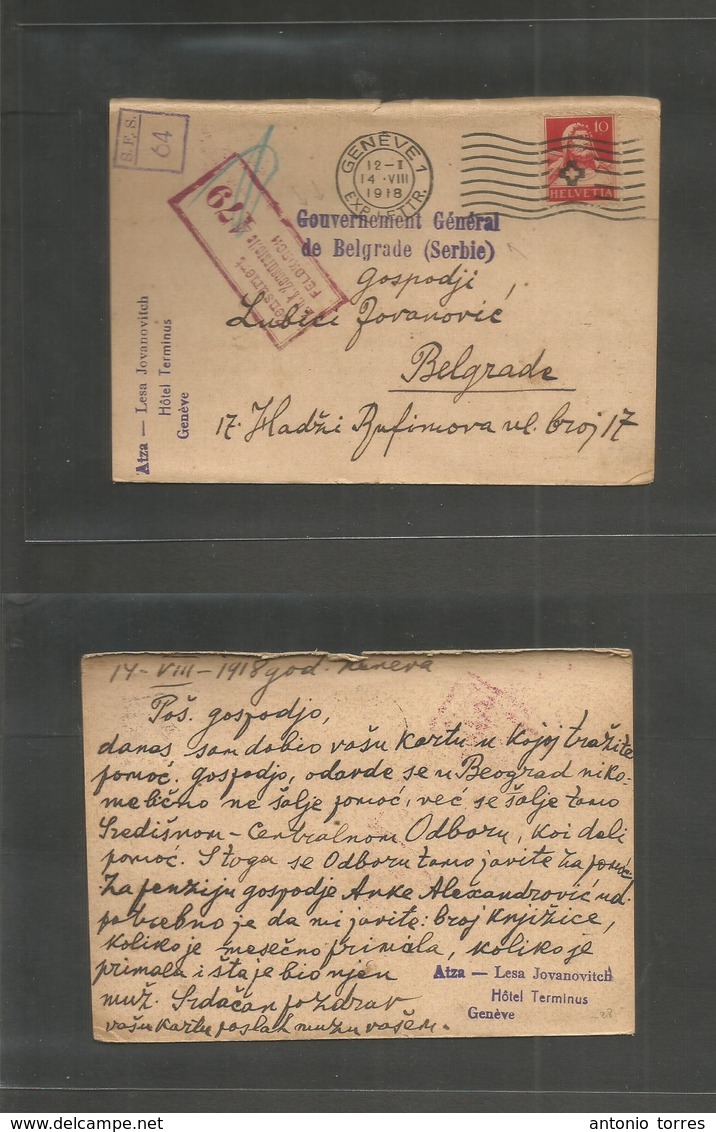 S.F.S.
64
GENÈVE 1
12-I
14.VIII
1918
EXP. LETTR.
10
HELVETIA
679
FELDKIRCH
Gouvernement Général
de Belgrade (Serbie)
Gospodji
Lubici Jovanović
Belgrade
17. Hadži Rufimova ul. broj 17
Aiza — Lesa Jovanovitch
Hôtel Terminus
Genève
14-VIII-1918 god. Ženeva
Poš. gospodjo,
danas sam dobio vašu kartu u kojoj tražite
pomoć. gospodjo, odavde se u Beograd niko-
me lično ne šalje pomoć, već se šalje tamo
Središnom-Centralnom Odboru, koi deli
pomoć. Stoga se Odboru tamo javite za pomoć.
Za penziju gospodje Anke Alexandrović
potrebno je da mi javite: broj knjižice,
koliko je mesečno primala, koliko je
primala i šta je bio njen
muž. Srdačan pozdrav
vašu kartu poslah mužu vašem.
Aiza — Lesa Jovanovitch
Hôtel Terminus
Genève
www.delcampe.net
antonio torres